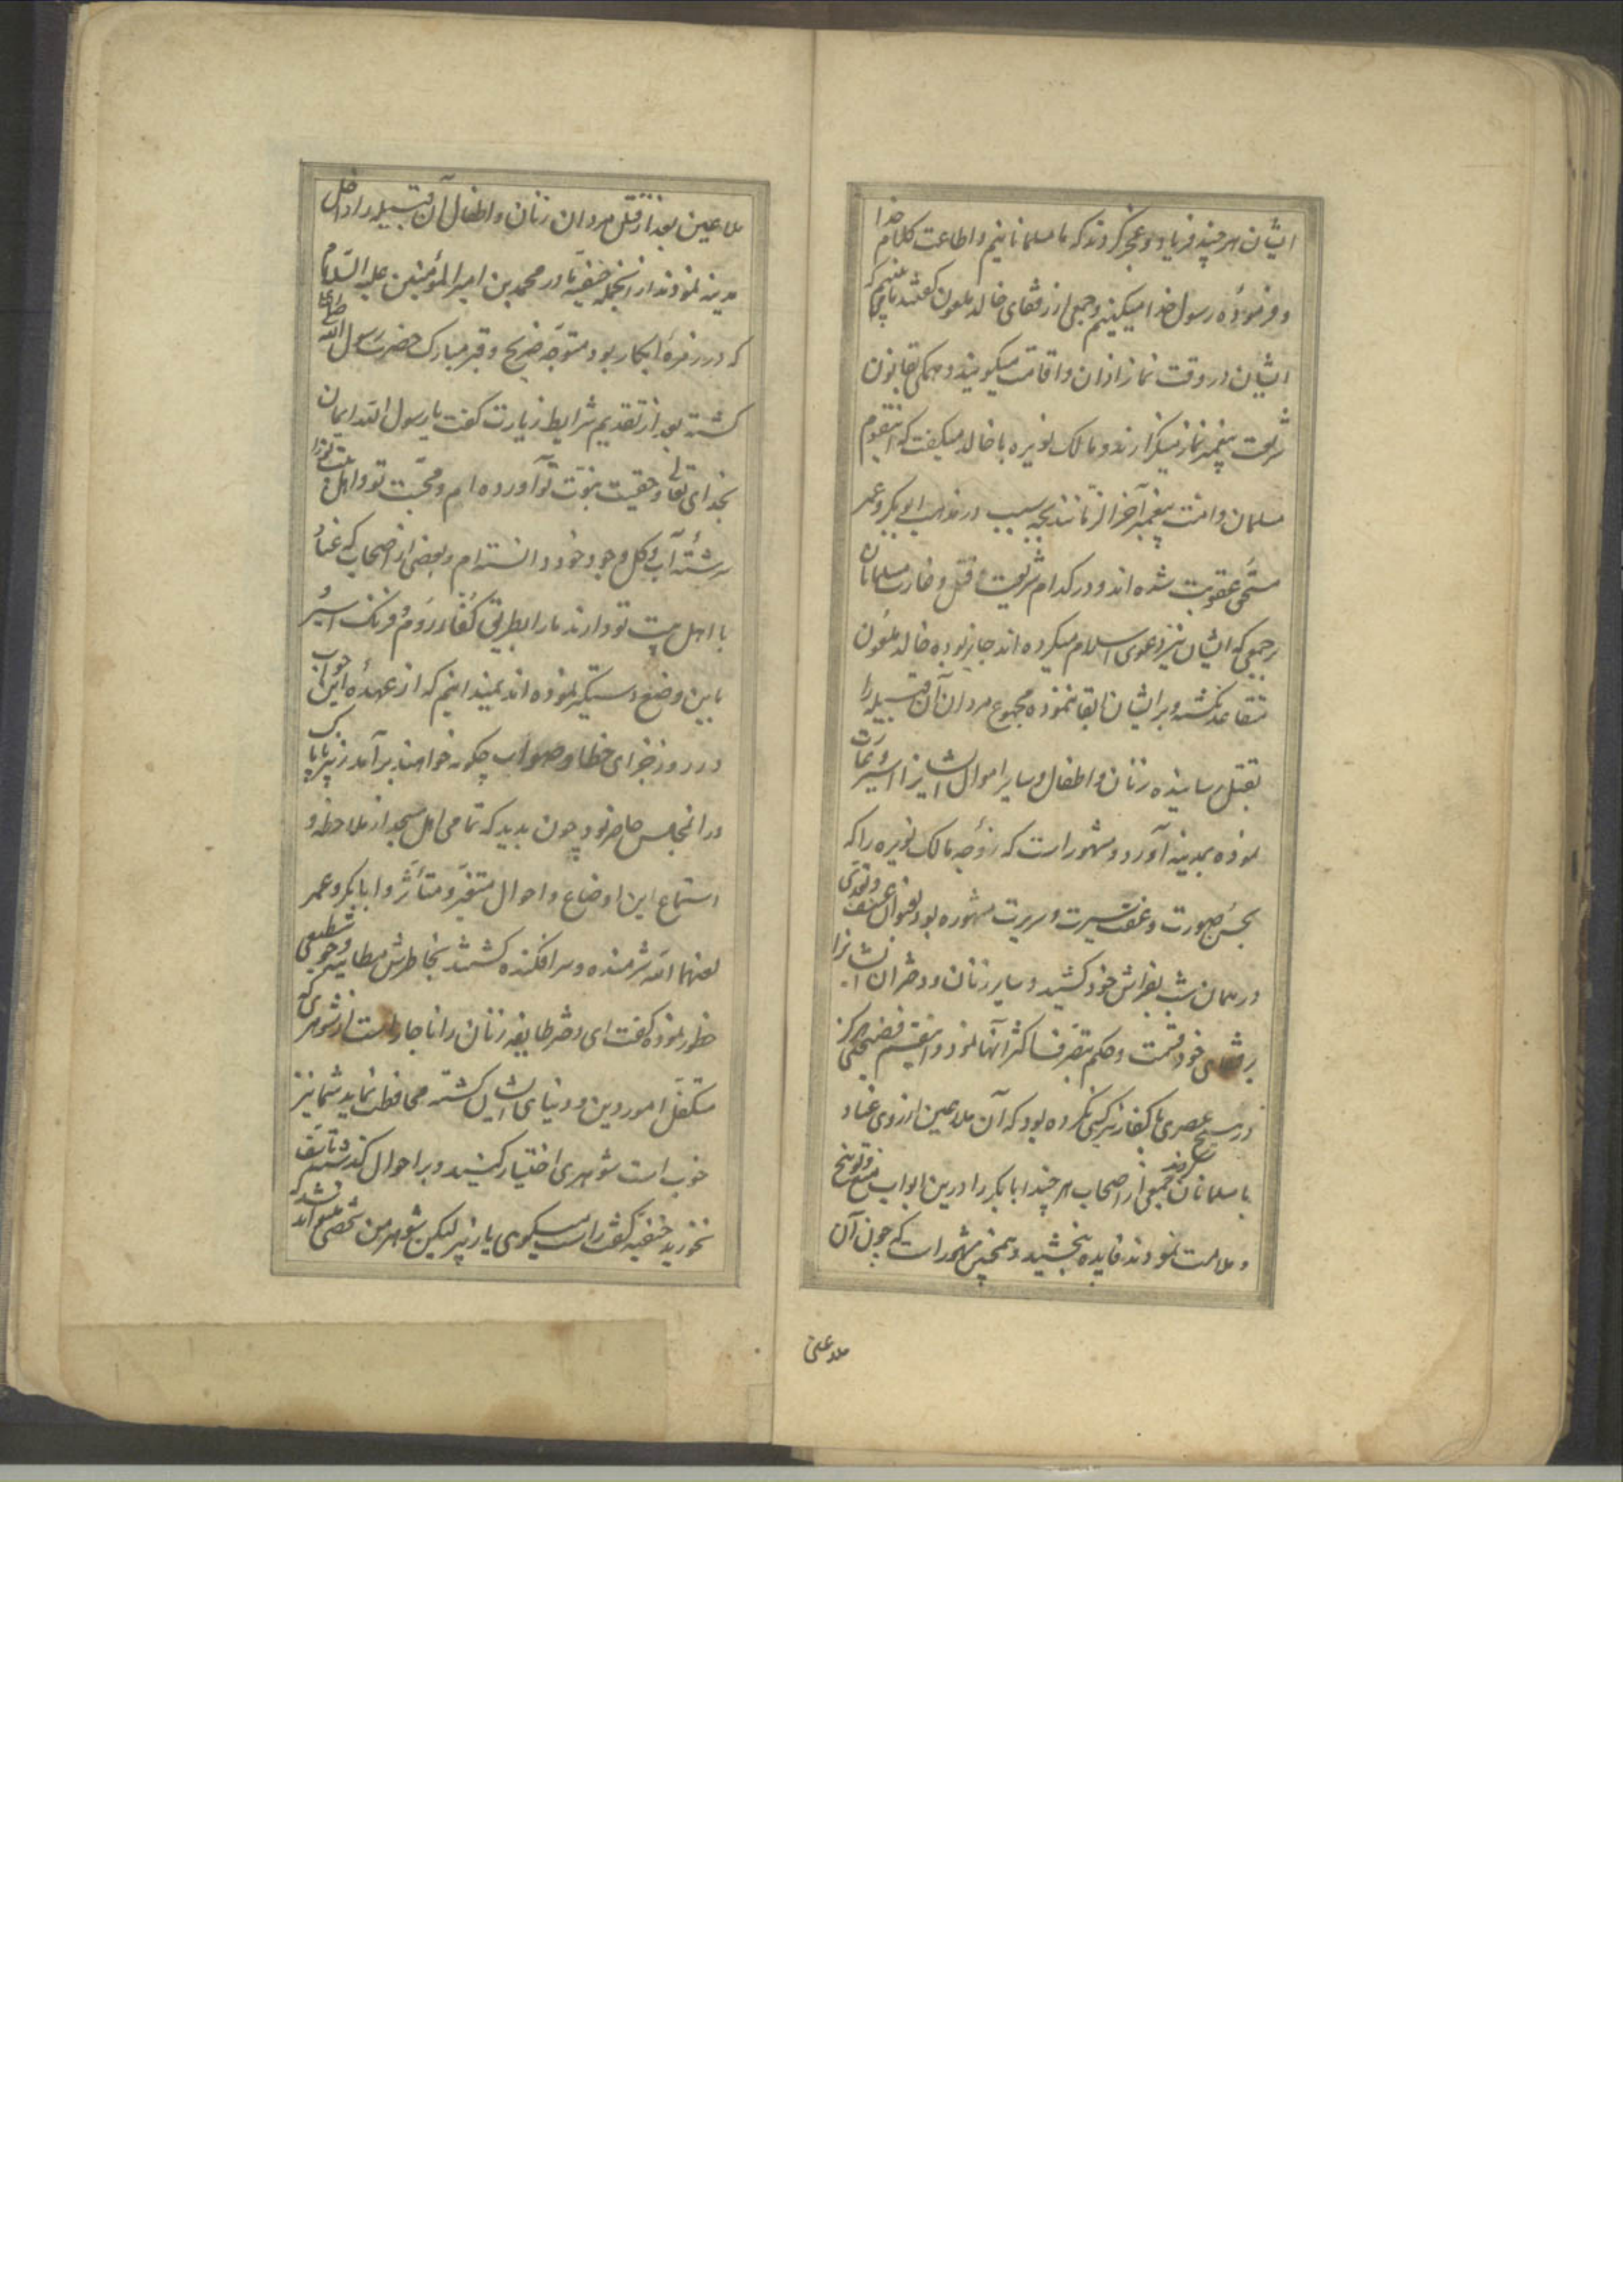 ایشان هر چند فریاد و عجز کردند که ما مسلمانانیم و اطاعت کلام خدا
و فرموده رسول خدا میکنیم و جمعی از رفقای خالد ملعون گفتند با
ایشان در وقت نماز اذان و اقامت میگویند و همگی بقانون
شریعت پیغمبر نماز میگزارند و مالک نویره با خالد میگفت که اینقوم
مسلمان و امت پیغمبر آخر الزمانند بچه سبب در مذهب ابی بکر و عمر
مستحق عقوبت شده اند و در کدام شریعت قتل و غارت مسلمانان
جمعی که ایشان نیز دعوی اسلام میکرده اند جایز بوده خالد ملعون
متقاعد نگشته و بر ایشان ابقا ننموده مجموع مردان آن قبیله را
بقتل رسانیده زنان و اطفال و سایر اموال ایشانرا اسیر و غارت
نموده بمدینه آورد و مشهور است که زوجه مالک نویره را که
بحسن صورت و عفت سیرت و سریرت مشهوره بود بعنوان عنف و تعدی
در همان شب بفراش خود کشید و سایر زنان و دختران ایشانرا
برفقای خود قسمت و حکم بتصرف اکثر آنها نمود و اینقسم فضیحتی هرگز
در هیچ عصری با کفار نیز کسی نکرده بود که آن ملاعین از روی عناد
با مسلمانان کردند جمعی از اصحاب هر چند ابابکر را درین ابواب منع و توبیخ
و ملامت نمودند فایده نبخشید و همچنین مشهور است که چون آن
ملاعین
ملاعین بعد از قتل مردان زنان و اطفال آن قبیله را داخل
مدینه نمودند از انجمله حنفیه مادر محمد بن امیر المؤمنین علیه السلام
که در زمره ابکار بود متوجه ضریح و قبر مبارک حضرت رسول الله
گشته بعد از تقدیم شرایط زیارت گفت یا رسول الله ایمان
بخدای تعالی و حقیت نبوت تو آورده ام و محبت تو و اهل بیت تو را
سرشته آب و گل وجود خود دانسته ام و بعضی از اصحاب که عناد
با اهل بیت تو دارند ما را بطریق کفار روم و فرنگ اسیر
باین وضع دستگیر نموده اند نمیدانیم که از عهده جواب این
در روز جزای خطا و صواب چگونه خواهند بر آمد زبیر
در انمجلس حاضر بود چون بدید که تمامی اهل مسجد از ملاحظه و
استماع این اوضاع و احوال متغیر و متأثر و ابابکر و عمر
لعنهما الله شرمنده و سر افکنده گشتند بخاطرش
خطور نموده گفت ای دختر طایفه زنان را ناچار است از شوهری که
متکفل امور دین و دنیای ایشان گشته محافظت نماید شما نیز
خوب است شوهری اختیار کنید و بر احوال گذشته تأسف
نخورید حنفیه گفت راست میگوی یا زبیر لیکن شوهر من شخصی